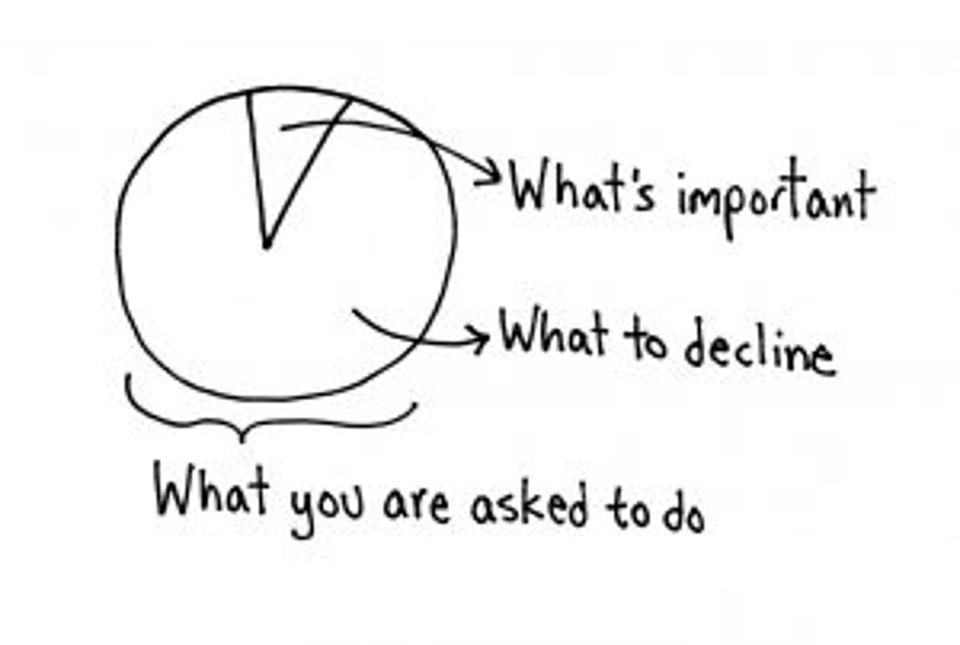 What's important
What to decline
What you are asked to do